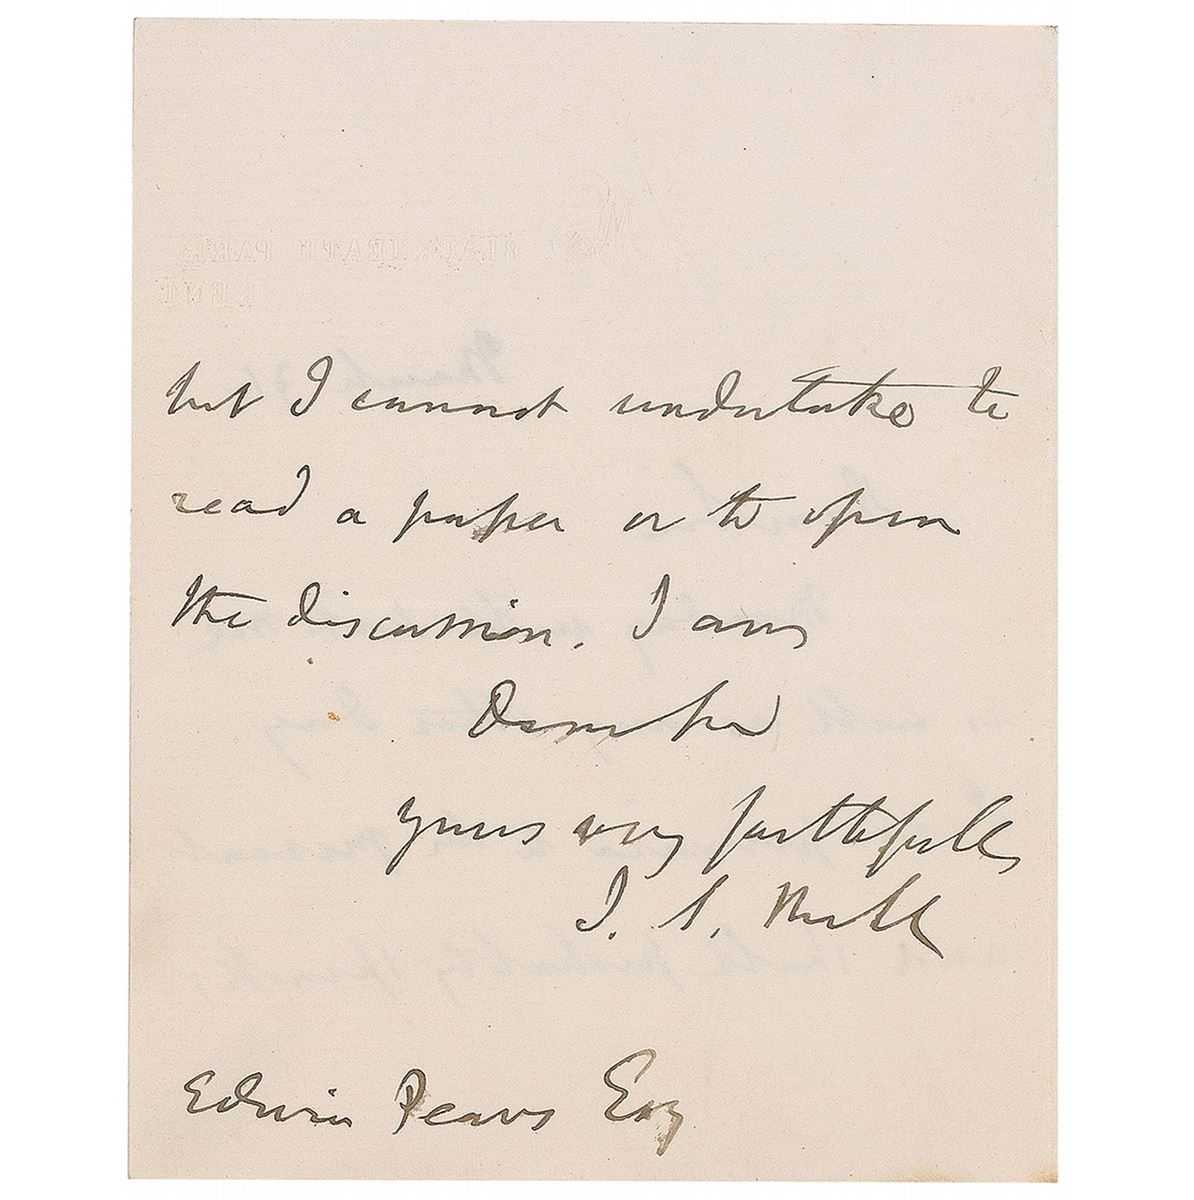 BLACKHEATH PARK
KENT
but I cannot undertake to
read a paper or to open
the discussion. I am
Dear Sir
yours very faithfully
J. S. Mill
Edwin Pears Esq